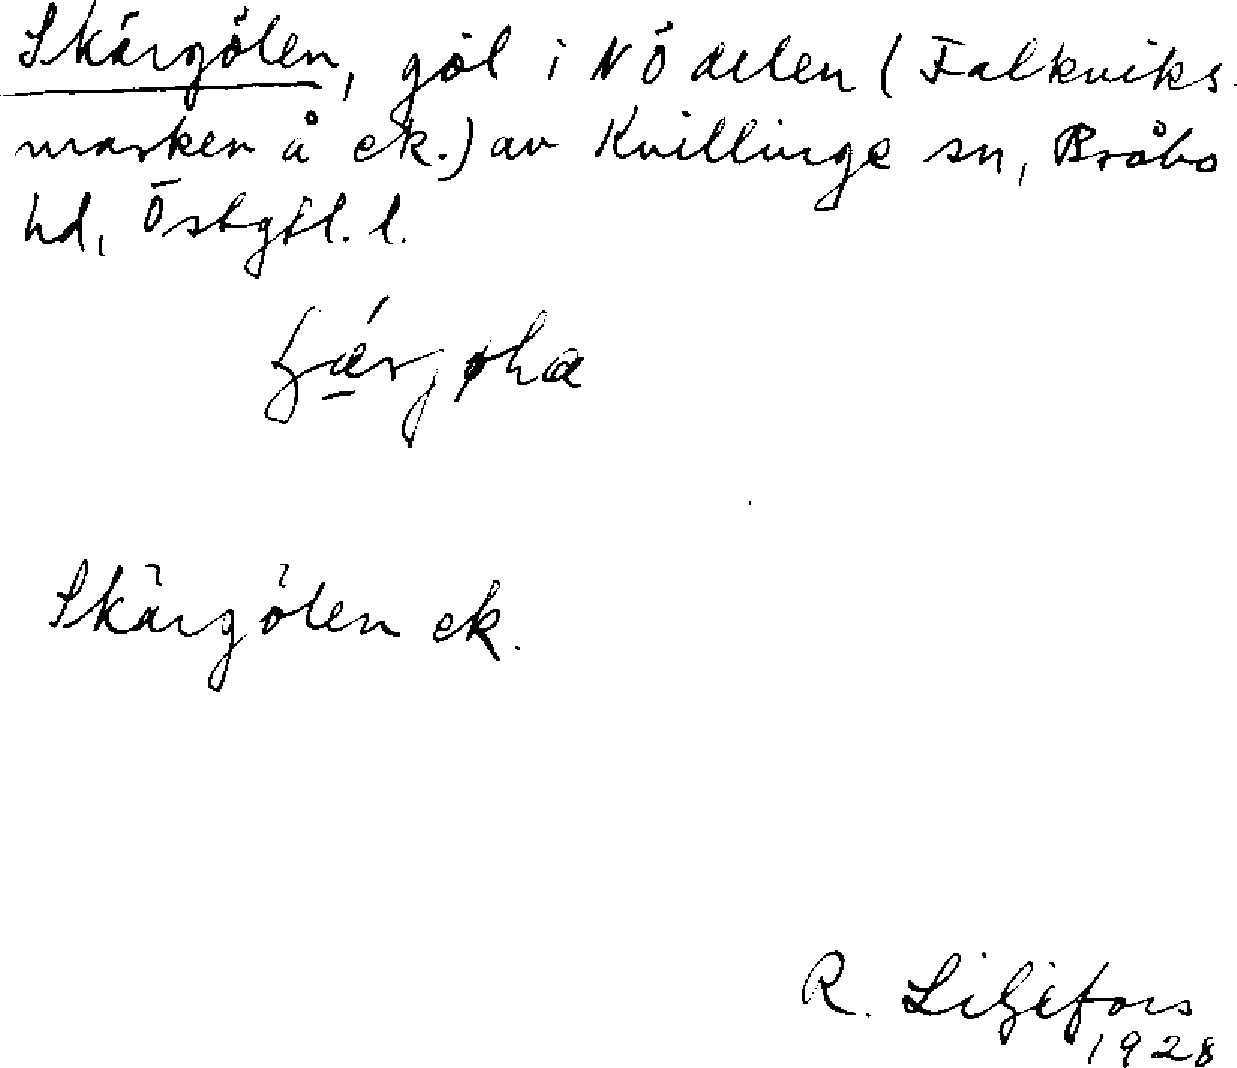 Skärgölen, göl i NÖ delen (Falkviks-
marken å ek.) av Kvillinge sn, Bråbo
hd, Östgöt. l.
Skärgölen ek.
R. Liljefors
1928